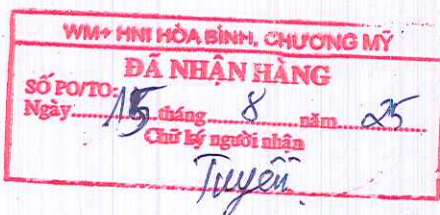 WM+ HNI HÒA BÌNH, CHƯƠNG MỸ
ĐÃ NHẬN HÀNG
SỐ PO/TO:
Ngày 15 tháng 8 năm 25
Chữ ký người nhận
Tuyên